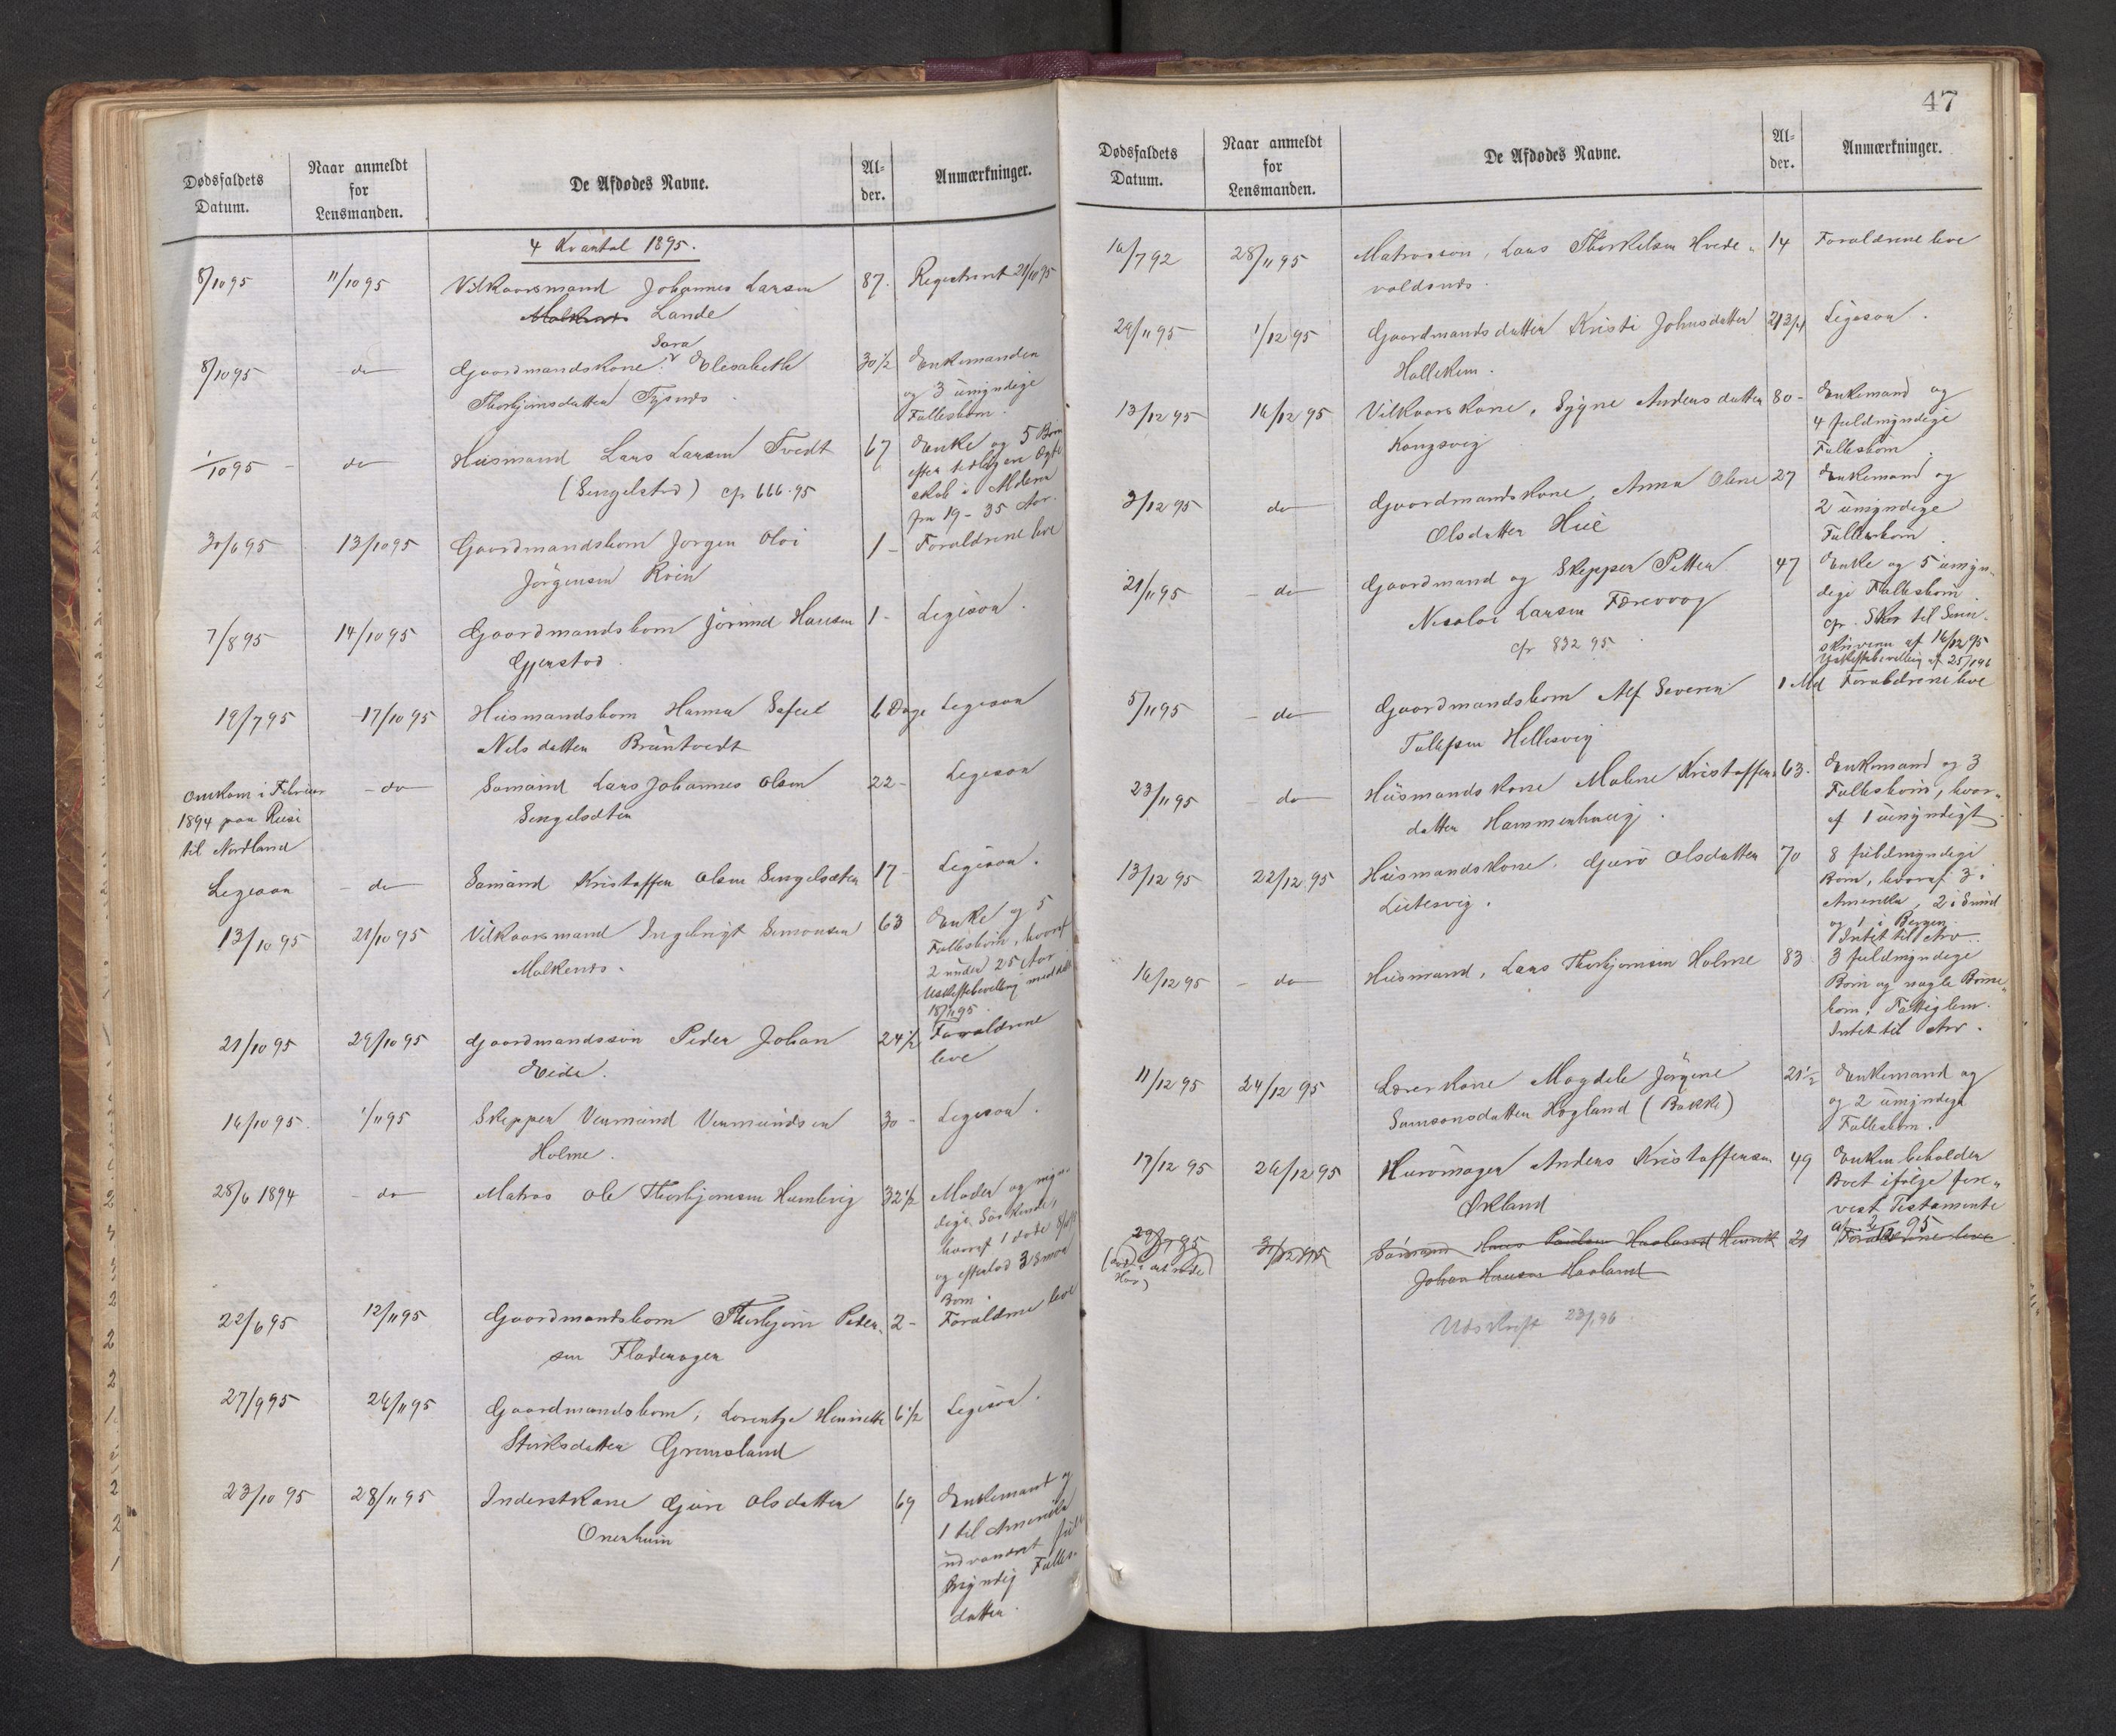 47
Dødsfaldets Datum.
Naar anmeldt for Lensmanden.
De Afdødes Navne.
Al-der.
Anmærkninger.
4 Kvartal 1895.
8/10 95 11/10 95 Vilkaarsmand Johannes Larsen 87. Registreret 21/10 95
Malkenes Lande
Sara
8/10 95 do Gaardmandskone Elisabeth 30 1/2 Enkemanden
Thorbjørnsdatter Tysnes og 3 umyndige
Fællesbørn.
1/10 95 do Husmand Lars Larsen Tvedt 67 Enke og 5 Børn
(Singelstad) cfr 666.95 efter tidligere Ægte
skab i Alderen
fra 19-35 Aar.
30/6 95 13/10 95 Gaardmandsbarn Jørgen Olai 1 - Forældrene leve
Jørgensen Røen
7/8 95 14/10 95 Gaardmandsbarn Jørund Hansen 1 - Ligesaa.
Gjerstad
19/7 95 17/10 95 Husmandsbarn Hanna 6 Dage Ligesaa
Nilsdatter Bruntvedt
Omkom i Februar - do - Sømand Lars Johannes Olsen 22 - Ligesaa
1894 paa Reise Singelsæter
til Nordland
Ligesaa - do Sømand Kristoffer Olsen Singelsæter 17 - Ligesaa.
13/10 95 21/10 95 Vilkaarsmand Ingebrigt Simonsen 63 Enke og 5
Malkenes. Fællesbørn, hvoraf
2 under 25 Aar
Uskiftebevilling meddelt
18/11 95
21/10 95 29/10 95 Gaardmandssøn Peder Johan 24 1/2 Forældrene
Eide. leve
16/10 95. 1/11 95 Skipper Vermund Vermundsen 30 - Ligesaa.
Holme.
28/6 1894 - do Matros Ole Thorbjørnsen Humlevig 32 1/2 Moder og myn-
dige Søskende,
hvoraf 1 døde
og efterlod 3 smaa
Børn.
22/6 95 12/11 95 Gaardmandsbarn Thorbjørn Peder- 2 - Forældrene leve
sen Fladerager
27/9 95 26/11 95 Gaardmandsbarn, Lorentze Henriette 6 1/2 Ligesaa.
Størksdatter Grimsland
23/10 95 28/11 95 Inderstkone Guro Olsdatter 69 Enkemand og
Onenhuin 1 til Amerika
udvandret fuld
myndig Fælles-
datter.
Dødsfaldets Datum.
Naar anmeldt for Lensmanden.
De Afdødes Navne.
Al-der.
Anmærkninger.
16/7 92 28/11 95 Matrossøn, Lars Thorkilsen Hvede- 14 Forældrene leve
voldsnes.
29/11 95 1/12 95 Gaardmandsdatter Kristi Johnsdatter 21 3/4 Ligesaa.
Hallekim.
13/12 95 16/12 95 Vilkaarskone, Sygne Andersdatter 80 - Enkemand og
Kongsvig 4 fuldmyndige
Fællesbørn.
3/12 95 do Gaardmandskone, Anna Oline 27 Enkemand og
Olsdatter Hue 2 umyndige
Fællesbørn.
21/11 95 - do Gaardmand og Skipper Petter 47 Enke og 5 umyn-
Nicolai Larsen Færevaag dige Fællesbørn.
cfr 832 95 cfr. Skr. til Soren-
skriveren af 16/12 95
Uskiftebevilling af 25/1 96
5/11 95 - do Gaardmandsbarn Alf Severin 1 Md Forældrene leve
Tollefsen Hellesvig
23/11 95 - do Husmandskone Malene Kristoffers- 63. Enkemand og 3
datter Hammerhaug. Fællesbørn, hvor-
af 1 umyndigt
13/12 95 22/12 95 Husmandskone. Guro Olsdatter 70 8 fuldmyndige
Lutesvig. Børn, hvoraf 3 i
Amerika, 2 i Sund
og 1 i Bergen.
Intet til Arv.
16/12 95 - do Husmand, Lars Thorbjørnsen Holme 83 3 fuldmyndige
Børn og nogle Børne-
børn. Fattiglem.
Intet til Arv.
11/12 95 24/12 95 Lærerkone Magdele Jørgine 21 1/2 Enkemand og
Samsonsdatter Hogland (Bakke) og 2 umyndige
Fællesbørn.
17/12 95 26/12 95 Kurvmager Anders Kristoffersen 49 Enken beholder
Økland Boet ifølge fore-
vist Testamente
af 95
29/7 95 31/12 95 Sømand Hans Paulsen Haaland Henrik 21 Forældrene leve
Johan Hansen Haaland
Udskrift 23/1 96.